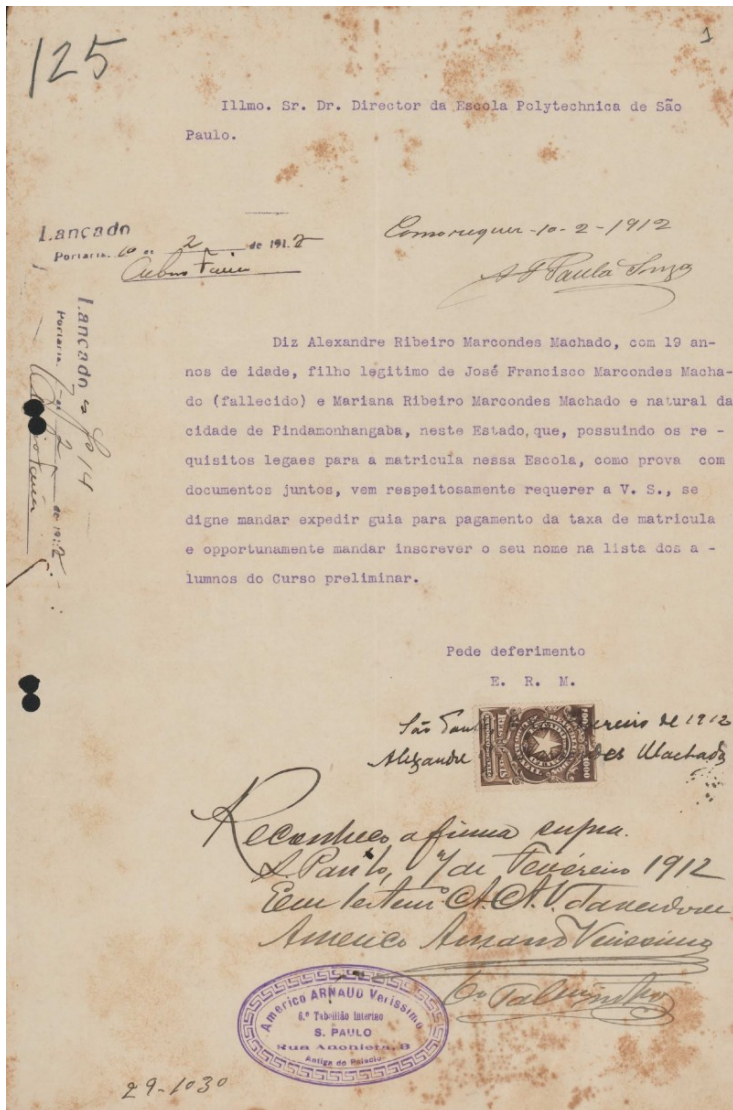 125
1
Illmo. Sr. Dr. Director da Escola Polytechnica de São
Paulo.
Lançado
Portaria, 10 de 2 de 1912
Como requer - 10 - 2 - 1912
A F Paula Souza
Lançado a fo 14
Portaria, 7 de 2 de 1912
Diz Alexandre Ribeiro Marcondes Machado, com 19 an-
nos de idade, filho legitimo de José Francisco Marcondes Macha-
do (fallecido) e Mariana Ribeiro Marcondes Machado e natural da
cidade de Pindamonhangaba, neste Estado, que, possuindo os re -
quisitos legaes para a matricula nessa Escola, como prova com
documentos juntos, vem respeitosamente requerer a V. S., se
digne mandar expedir guia para pagamento da taxa de matricula
e opportunamente mandar inscrever o seu nome na lista dos a -
lumnos do Curso preliminar.
Pede deferimento
E. R. M.
São Paulo de Fevereiro de 1912
Alexandre Marcondes Machado
Reconheço a firma supra.
S. Paulo, 7 de Fevereiro 1912
Em testem.º A.A.V. da verdade
Americo Arnaud Verissimo
6o Tabellião
Americo ARNAUD Verissimo
6.º Tabellião Interino
S. PAULO
Rua Anchieta, 8
Antiga do Palacio
29-1030